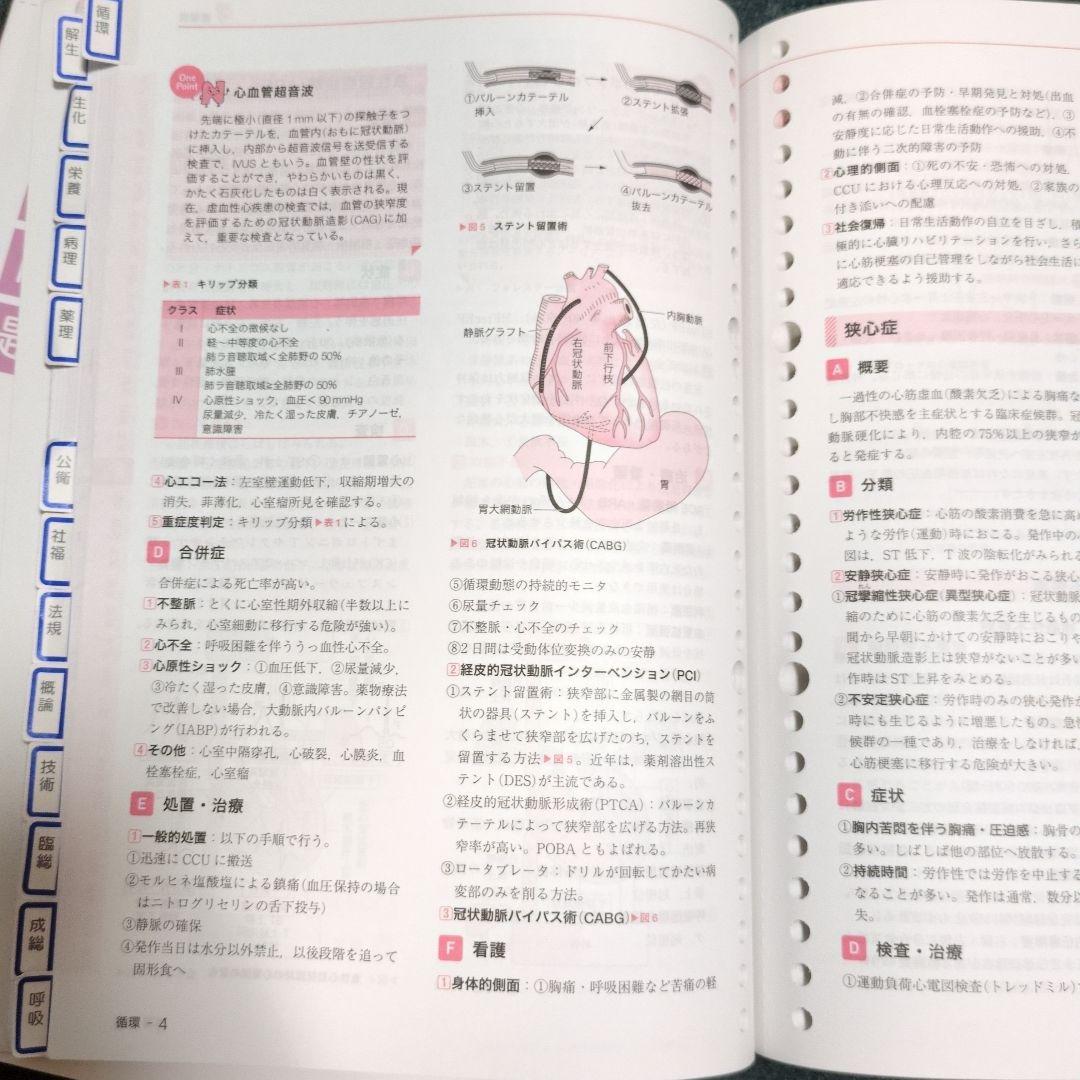 循環
解生
生化
栄養
病理
薬理
公衛
社福
法規
概論
技術
臨総
成総
呼吸
One Point
心血管超音波
先端に極小(直径1mm以下)の探触子をつ
けたカテーテルを，血管内(おもに冠状動脈)
に挿入し，内部から超音波信号を送受信する
検査で，IVUSともいう。血管壁の性状を評
価することができ，やわらかいものは黒く，
かたく石灰化したものは白く表示される。現
在，虚血性心疾患の検査では，血管の狭窄度
を評価するための冠状動脈造影(CAG)に加
えて，重要な検査となっている。
▶表1 キリップ分類
クラス 症状
Ⅰ 心不全の徴候なし
Ⅱ 軽～中等度の心不全
肺ラ音聴取域＜全肺野の50%
Ⅲ 肺水腫
肺ラ音聴取域≧全肺野の50%
Ⅳ 心原性ショック，血圧＜90mmHg
尿量減少，冷たく湿った皮膚，チアノーゼ，
意識障害
4心エコー法：左室壁運動低下，収縮期増大の
消失，菲薄化，心室瘤所見を確認する。
5重症度判定：キリップ分類▶表1による。
D 合併症
合併症による死亡率が高い。
1不整脈：とくに心室性期外収縮(半数以上に
みられ，心室細動に移行する危険が強い)。
2心不全：呼吸困難を伴ううっ血性心不全。
3心原性ショック：①血圧低下，②尿量減少，
③冷たく湿った皮膚，④意識障害。薬物療法
で改善しない場合，大動脈内バルーンパンピ
ング(IABP)が行われる。
4その他：心室中隔穿孔，心破裂，心膜炎，血
栓塞栓症，心室瘤
E 処置・治療
1一般的処置：以下の手順で行う。
①迅速にCCUに搬送
②モルヒネ塩酸塩による鎮痛(血圧保持の場合
はニトログリセリンの舌下投与)
③静脈の確保
④発作当日は水分以外禁止，以後段階を追って
固形食へ
循環 - 4
①バルーンカテーテル
挿入
②ステント拡張
③ステント留置
④バルーンカテーテル
抜去
▶図5 ステント留置術
静脈グラフト
内胸動脈
右冠状動脈
前下行枝
胃
胃大網動脈
▶図6 冠状動脈バイパス術(CABG)
⑤循環動態の持続的モニタ
⑥尿量チェック
⑦不整脈・心不全のチェック
⑧2日間は受動体位変換のみの安静
2経皮的冠状動脈インターベンション(PCI)
①ステント留置術：狭窄部に金属製の網目の筒
状の器具(ステント)を挿入し，バルーンをふ
くらませて狭窄部を広げたのち，ステントを
留置する方法▶図5。近年は，薬剤溶出性ス
テント(DES)が主流である。
②経皮的冠状動脈形成術(PTCA)：バルーンカ
テーテルによって狭窄部を広げる方法。再狭
窄率が高い。POBAともよばれる。
③ロータブレータ：ドリルが回転してかたい病
変部のみを削る方法。
3冠状動脈バイパス術(CABG)▶図6
F 看護
1身体的側面：①胸痛・呼吸困難など苦痛の軽
減，②合併症の予防・早期発見と対処(出血
の有無の確認，血栓塞栓症の予防など)，③
安静度に応じた日常生活動作への援助，④
動に伴う二次的障害の予防
2心理的側面：①死の不安・恐怖への対処，
CCUにおける心理反応への対処，②家族の
付き添いへの配慮
3社会復帰：日常生活動作の自立を目ざし，積
極的に心臓リハビリテーションを行い，さら
に心筋梗塞の自己管理をしながら社会生活に
適応できるよう援助する。
狭心症
A 概要
一過性の心筋虚血(酸素欠乏)による胸痛な
し胸部不快感を主症状とする臨床症候群。冠
動脈硬化により，内腔の75%以上の狭窄が
ると発症する。
B 分類
1労作性狭心症：心筋の酸素消費を急に高め
ような労作(運動)時におこる。発作中の心
図は，ST低下，T波の陰転化がみられる
2安静狭心症：安静時に発作がおこる狭心
①冠攣縮性狭心症(異型狭心症)：冠状動脈
縮のために心筋の酸素欠乏を生じるもの
間から早朝にかけての安静時におこりや
冠状動脈造影上は狭窄がないことが多い
作時はST上昇をみとめる。
②不安定狭心症：労作時のみの狭心発作が
時にも生じるように増悪したもの。急性
候群の一種であり，治療をしなければ，
心筋梗塞に移行する危険が大きい。
C 症状
①胸内苦悶を伴う胸痛・圧迫感：胸骨の
多い。しばしば他の部位へ放散する。
②持続時間：労作性では労作を中止する
なることが多い。発作は通常，数分以
失。
D 検査・治療
①運動負荷心電図検査(トレッドミル)